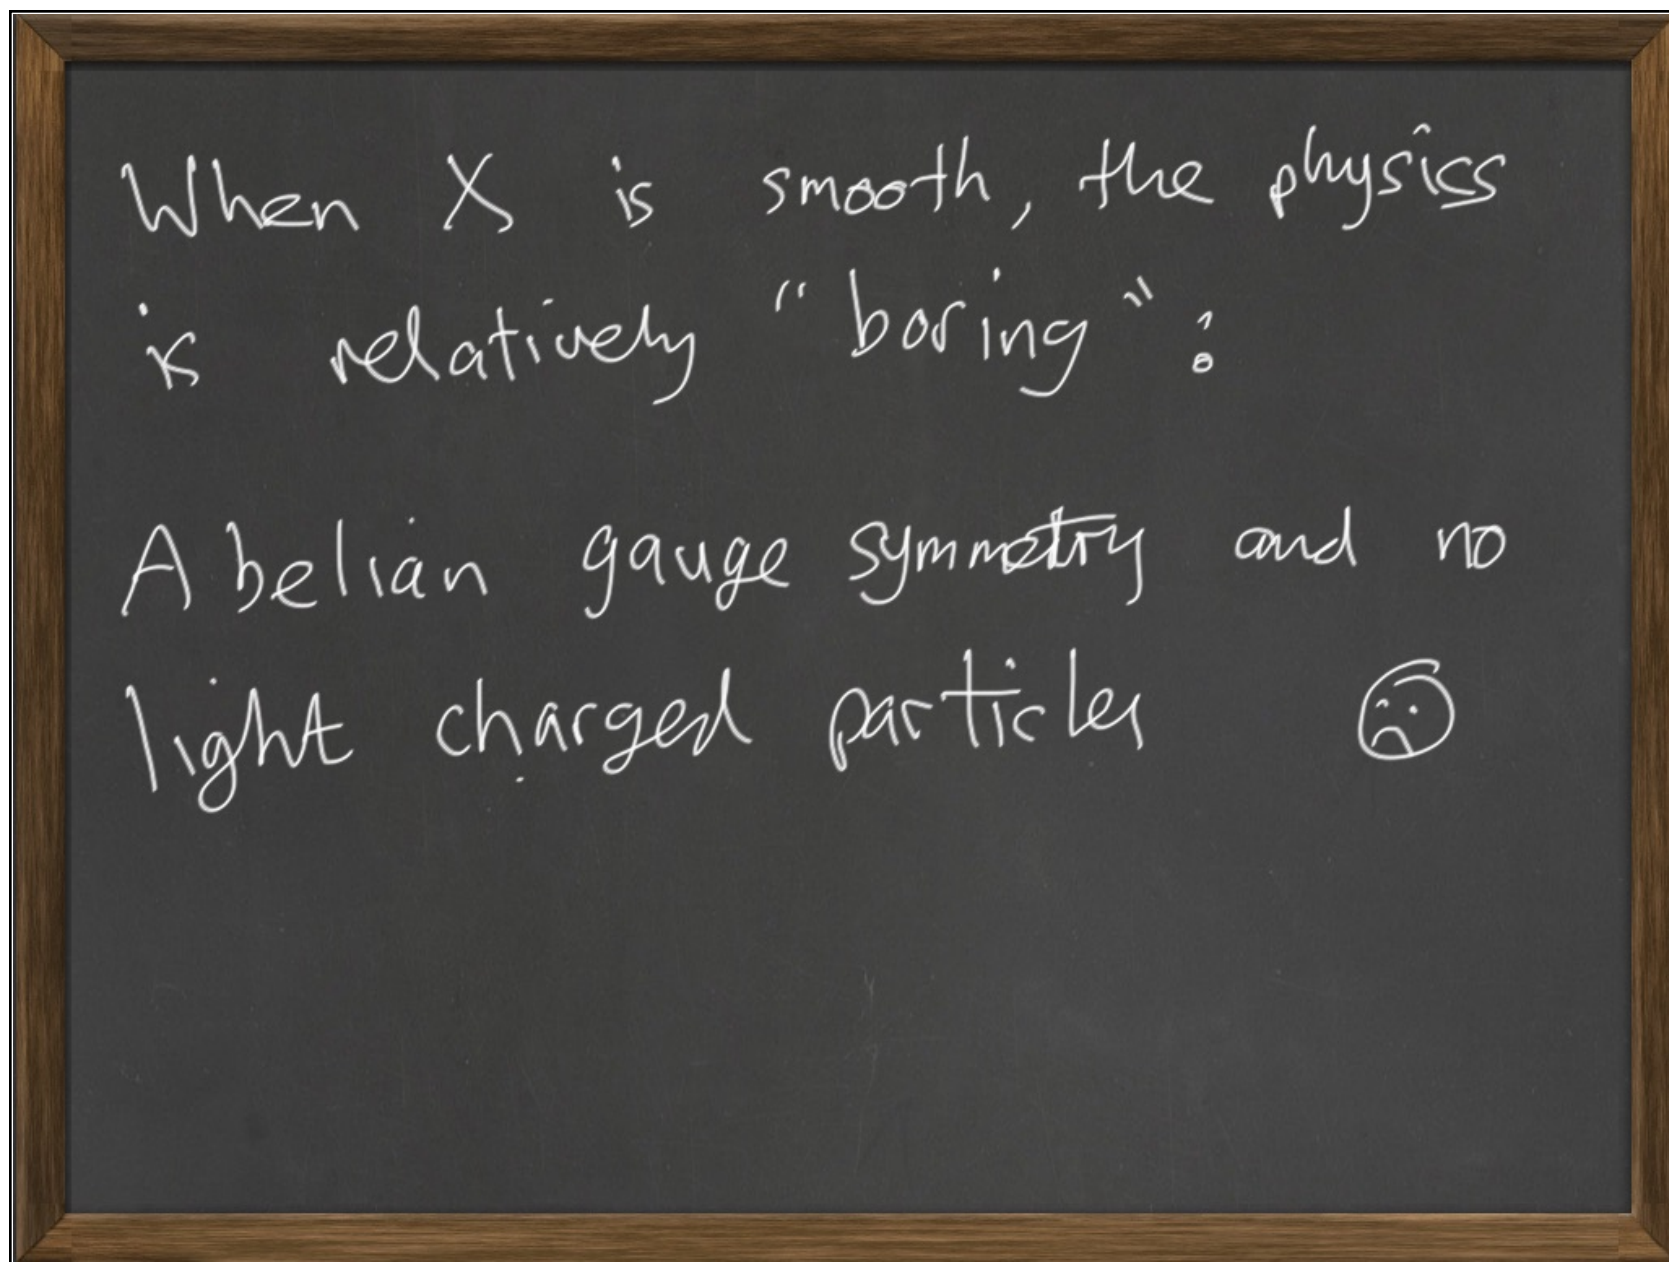 When X is smooth, the physics
is relatively "boring":
Abelian gauge symmetry and no
light charged particles